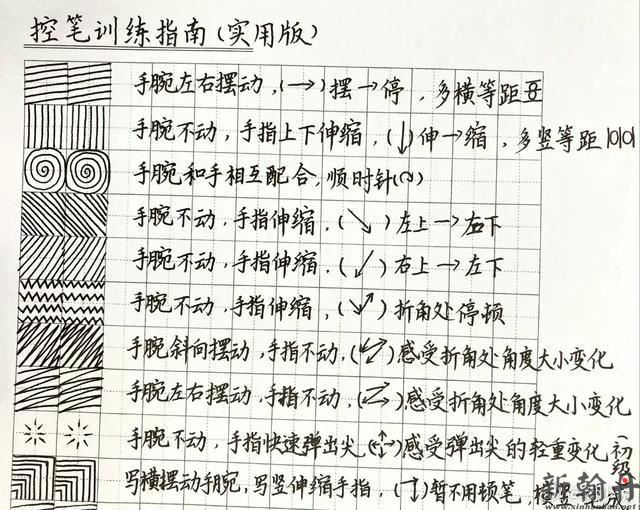 控笔训练指南(实用版)
手腕左右摆动,(→)摆→停,多横等距
手腕不动,手指上下伸缩,(↓)伸→缩,多竖等距
手腕和手相互配合,顺时针
手腕不动,手指伸缩,(↘)左上→右下
手腕不动,手指伸缩,(↙)右上→左下
手腕不动,手指伸缩,(↘↗)折角处停顿
手腕斜向摆动,手指不动,感受折角处角度大小变化
手腕左右摆动,手指不动,感受折角处角度大小变化
手腕不动,手指快速弹出尖,感受弹出尖的轻重变化
写横摆动手腕,写竖伸缩手指,暂不用顿笔,
(初级
新翰舟